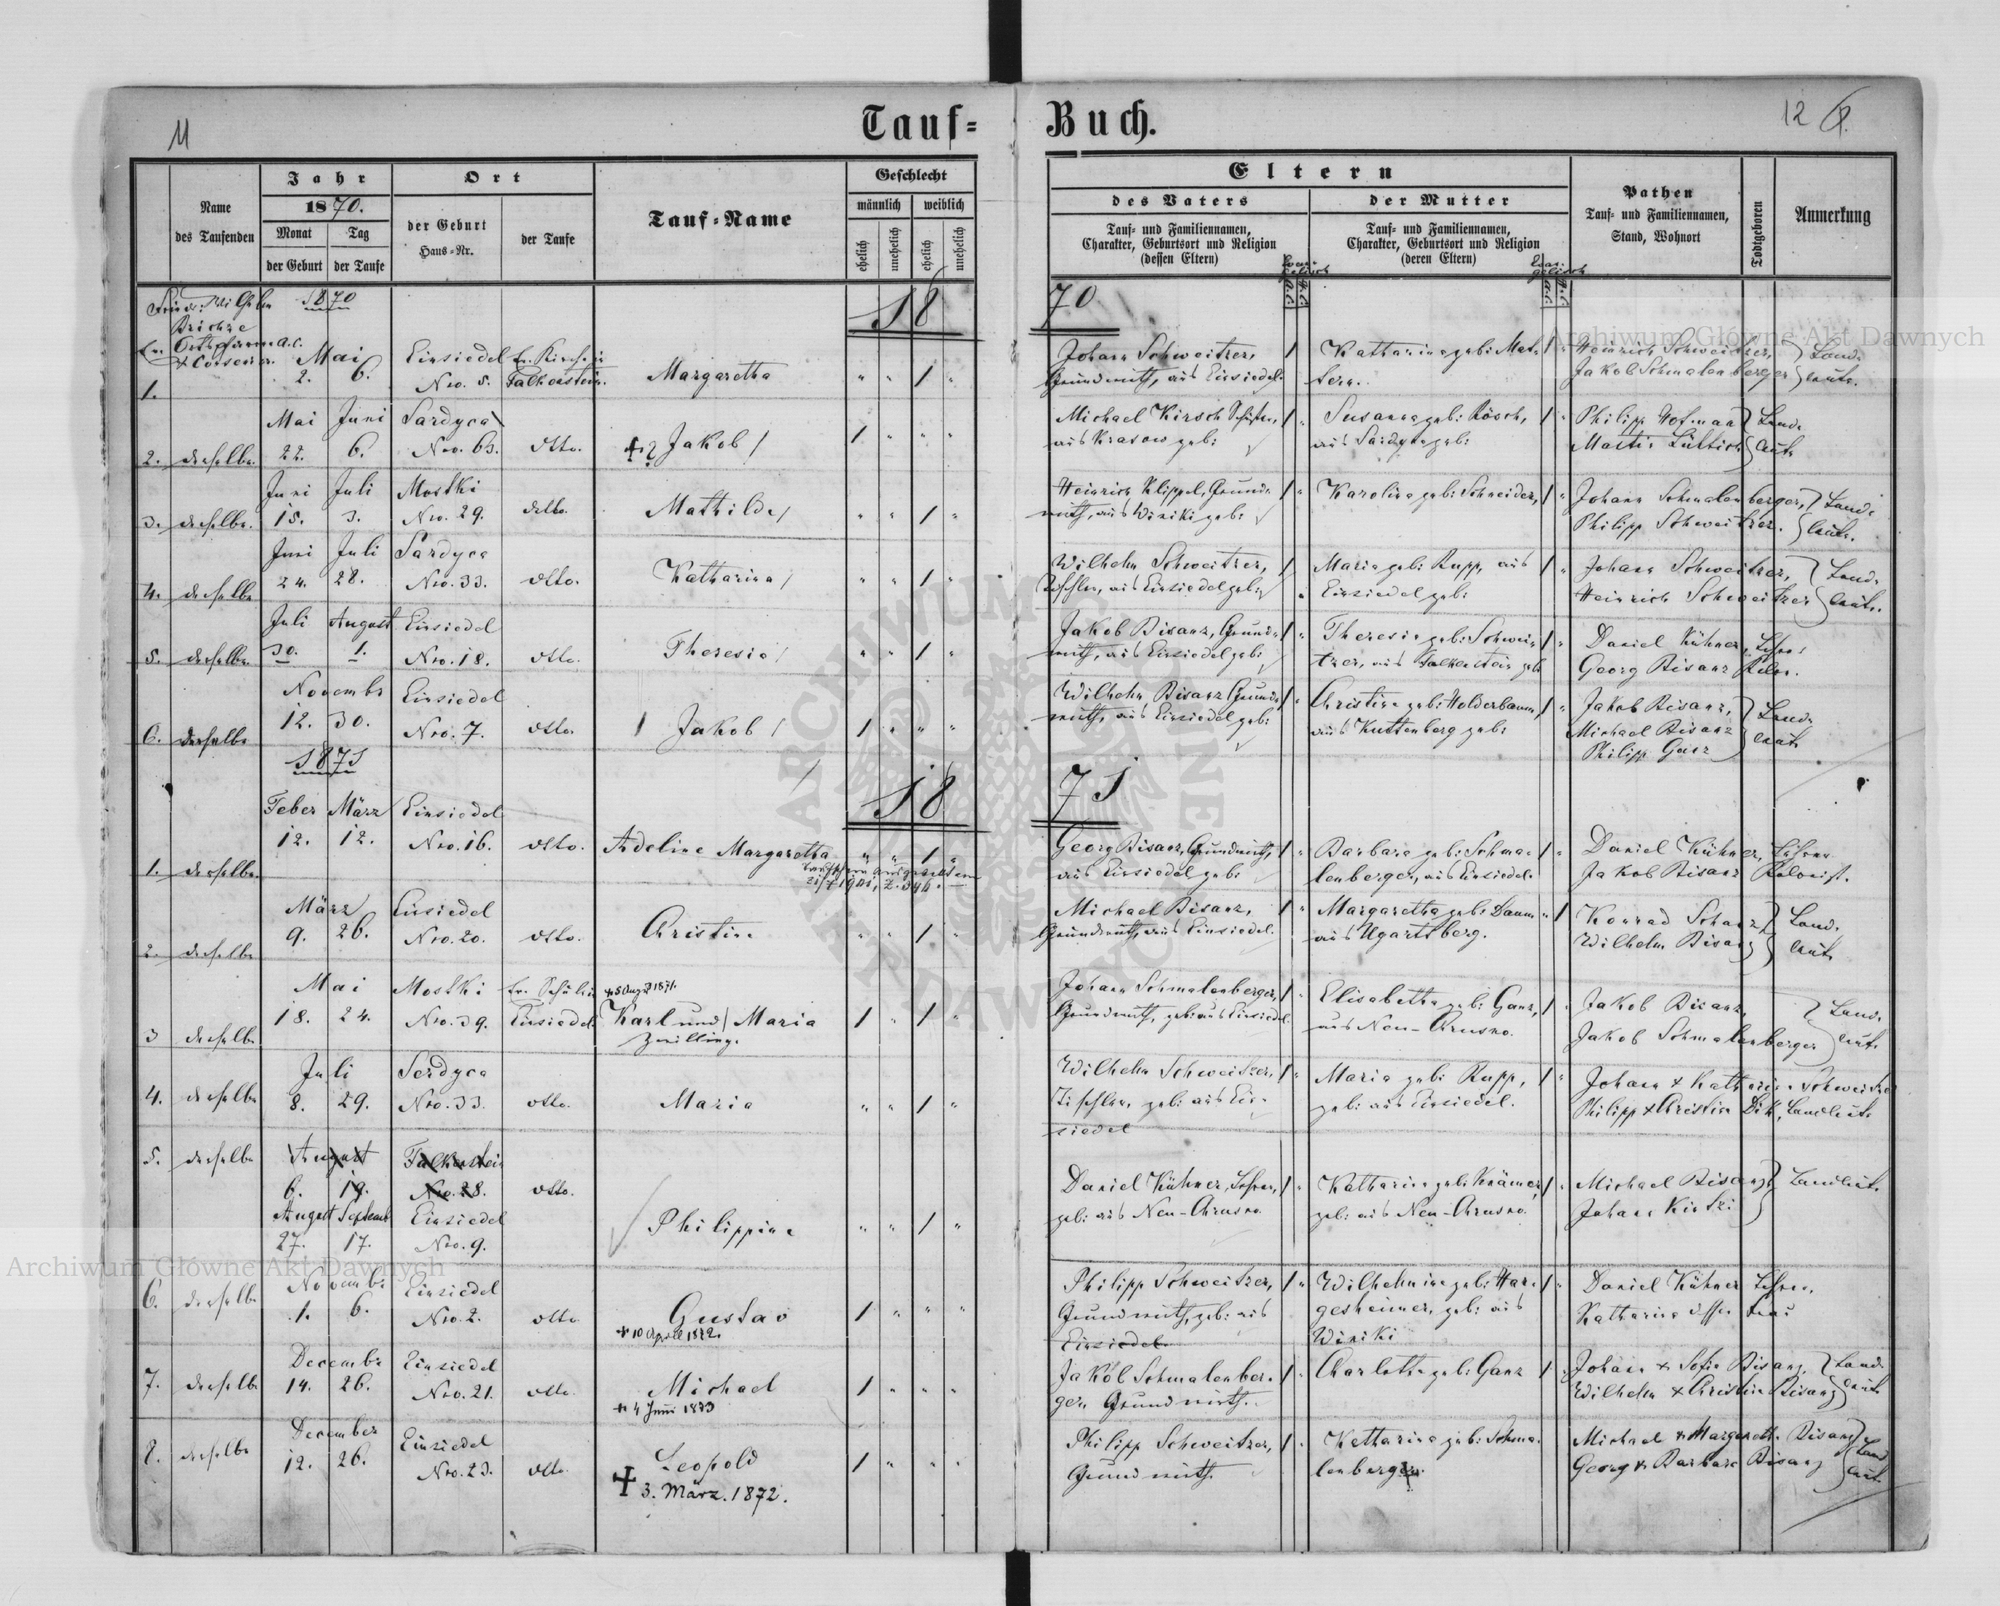 11
Tauf-
Buch.
12
Name des Taufenden
Jahr
1870.
Monat
Tag
der Geburt
der Taufe
Ort
der Geburt
Haus-Nr.
der Taufe
Tauf-Name
Geschlecht
männlich
weiblich
ehelich
unehelich
ehelich
unehelich
Eltern
des Vaters
Tauf- und Familiennamen,
Charakter, Geburtsort und Religion
(dessen Eltern)
der Mutter
Tauf- und Familiennamen,
Charakter, Geburtsort und Religion
(deren Eltern)
Pathen
Tauf- und Familiennamen,
Stand, Wohnort
Todtgeboren
Anmerkung
1870
18
70
1. Mai 2. 6. Einsiedel Nro. 5. Falkenstein. Margaretha 1
Johann Schweitzer, Grundwirth, aus Einsiedel. Katharina geb: Heinrich Schweitzer, Jakob Schmalenberger Landleute.
2. derselbe. Mai 22. Juni 6. Sardyca Nro. 63. dtto. Jakob 1
Michael Kirsch aus Krasow geb: Susanna geb: Rösch, aus geb: Philipp Hofmann Landleute
3. derselbe. Juni 15. Juli 3. Mostki Nro. 29. detto. Mathilde 1
Heinrich Klippel, Grundwirth, aus Winiki geb: Karolina geb: Schneider, Johann Schmalenberger, Philipp Schweitzer. Landleute.
4. derselbe Juni 24. Juli 28. Sardyca Nro. 33. dtto. Katharina 1
Wilhelm Schweitzer, Tischler, aus Einsiedel geb: Maria geb: Rupp, aus Einsiedel geb: Johann Schweitzer, Heinrich Schweitzer Landleute.
5. derselbe. Juli 30. August 1. Einsiedel Nro. 18. dtto. Theresia 1
Jakob Bisanz, Grundwirth, aus Einsiedel geb: Theresia geb: Schweitzer, aus Falkenstein geb: Daniel Kühner, Lehrer Georg Bisanz
6. derselbe Novembr 12. 30. Einsiedel Nro. 7. dtto. Jakob 1
Wilhelm Bisanz Grundwirth, aus Einsiedel geb: Christina geb: Holderbaum, aus Kuttenberg geb: Jakob Bisanz, Michael Bisanz Philipp Ganz Landleute
1871
18
71
1. derselbe. Feber 12. März 12. Einsiedel Nro. 16. dtto. Adeline Margaretha 1
Georg Bisanz, Grundwirth, aus Einsiedel geb: Barbara geb: Schmalenberger, aus Einsiedel. Daniel Kühner, Lehrer Jakob Bisanz Kolonist.
2. derselbe März 9. 26. Einsiedel Nro. 20. dtto. Christine 1
Michael Bisanz, Grundwirth, aus Einsiedel. Margaretha geb: Daum aus Ugartsberg. Konrad Schanz, Wilhelm Bisanz Landleute
3 derselbe Mai 18. 24. Mostki Nro. 39. Ev. Schule Einsiedel. Karl und Maria Zwillinge. 1 1
Johann Schmalenberger, Grundwirth, geb: aus Einsiedel. Elisabetha geb: Ganz, aus Neu-Chrusno. Jakob Bisanz, Jakob Schmalenberger Landleute
4. derselbe Juli 8. 29. Serdyca Nro. 33. dtto. Maria 1
Wilhelm Schweitzer, Tischler, geb: aus Einsiedel Maria geb: Rupp, geb: aus Einsiedel. Johann & Katharina Schweitzer Philipp & Christina Landleute
5. derselbe August 6. 19. Falkenstein Nro. 28. dtto.
August 27. Septemb 17. Einsiedel Nro. 9. Philippine 1
Daniel Kühner, Lehrer, geb: aus Neu-Chrusno. Katharina geb: Krämer, geb: aus Neu-Chrusno. Michael Bisanz, Johann Kintzi Landleute
6. derselbe Novembr 1. 6. Einsiedel Nro. 2. dtto. Gustav 1
+ 10 April 1872.
Philipp Schweitzer, Grundwirth, geb: aus Einsiedel. Wilhelmina geb: Hargesheimer, geb: aus Winiki Daniel Kühner Lehrer, Katharina dessen Frau
7. derselbe Decembr 14. 26. Einsiedel Nro. 21. dtto. Michael 1
+ 4 Juni 1873
Jakob Schmalenberger Grundwirth. Charlotte geb: Ganz Johann & Sofie Bisanz, Wilhelm & Christina Bisanz Landleute
8. derselbe December 12. 26. Einsiedel Nro. 23. dtto. Leopold 1
+ 3. März. 1872.
Philipp Schweitzer, Grundwirth. Katharina geb: Schmalenberger. Michael & Margareth. Bisanz, Georg & Barbara Bisanz Landleute
Archiwum Główne Akt Dawnych
Archiwum Główne Akt Dawnych
ARCHIWUM GŁÓWNE AKT DAWNYCH